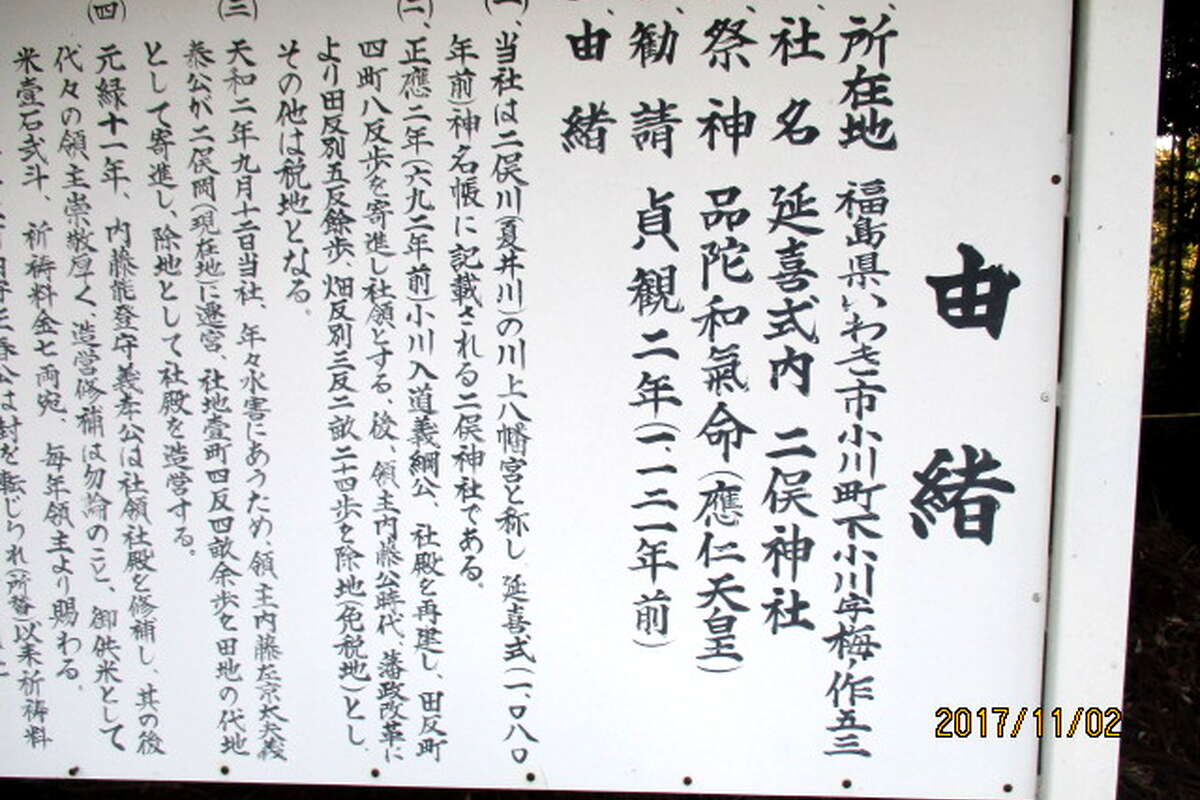 由緒
、所在地 福島県いわき市小川町下小川字梅ノ作五三
、社名 延喜式内 二俣神社
、祭神 品陀和氣命(應仁天皇)
、勧請 貞観二年(一、一二一年前)
、由緒
(一)、当社は二俣川(夏井川)の川上八幡宮と称し、延喜式(一、〇八〇
年前)神名帳に記載される二俣神社である。
(二)、正應二年(六九二年前)小川入道義綱公、社殿を再建し、田反町
四町八反歩を寄進し社領とする。後、領主内藤公時代、藩政改革に
より田反別五反餘歩、畑反別三反二畝二十四歩を除地(免税地)とし、
その他は税地となる。
(三)天和二年九月十二日当社、年々水害にあうため、領主内藤左京大夫義
泰公が二俣岡(現在地)に遷宮、社地壹町四反四畝余歩を田地の代地
として寄進し、除地として社殿を造営する。
(四)元緑十一年、内藤能登守義孝公は社領社殿を修補し、其の後
代々の領主崇敬厚く、造営修補は勿論のこと、御供米として
米壹石弐斗、祈祷料金七両宛、毎年領主より賜わる。
公は封を転じられ所替以来祈祷料
2017/11/02